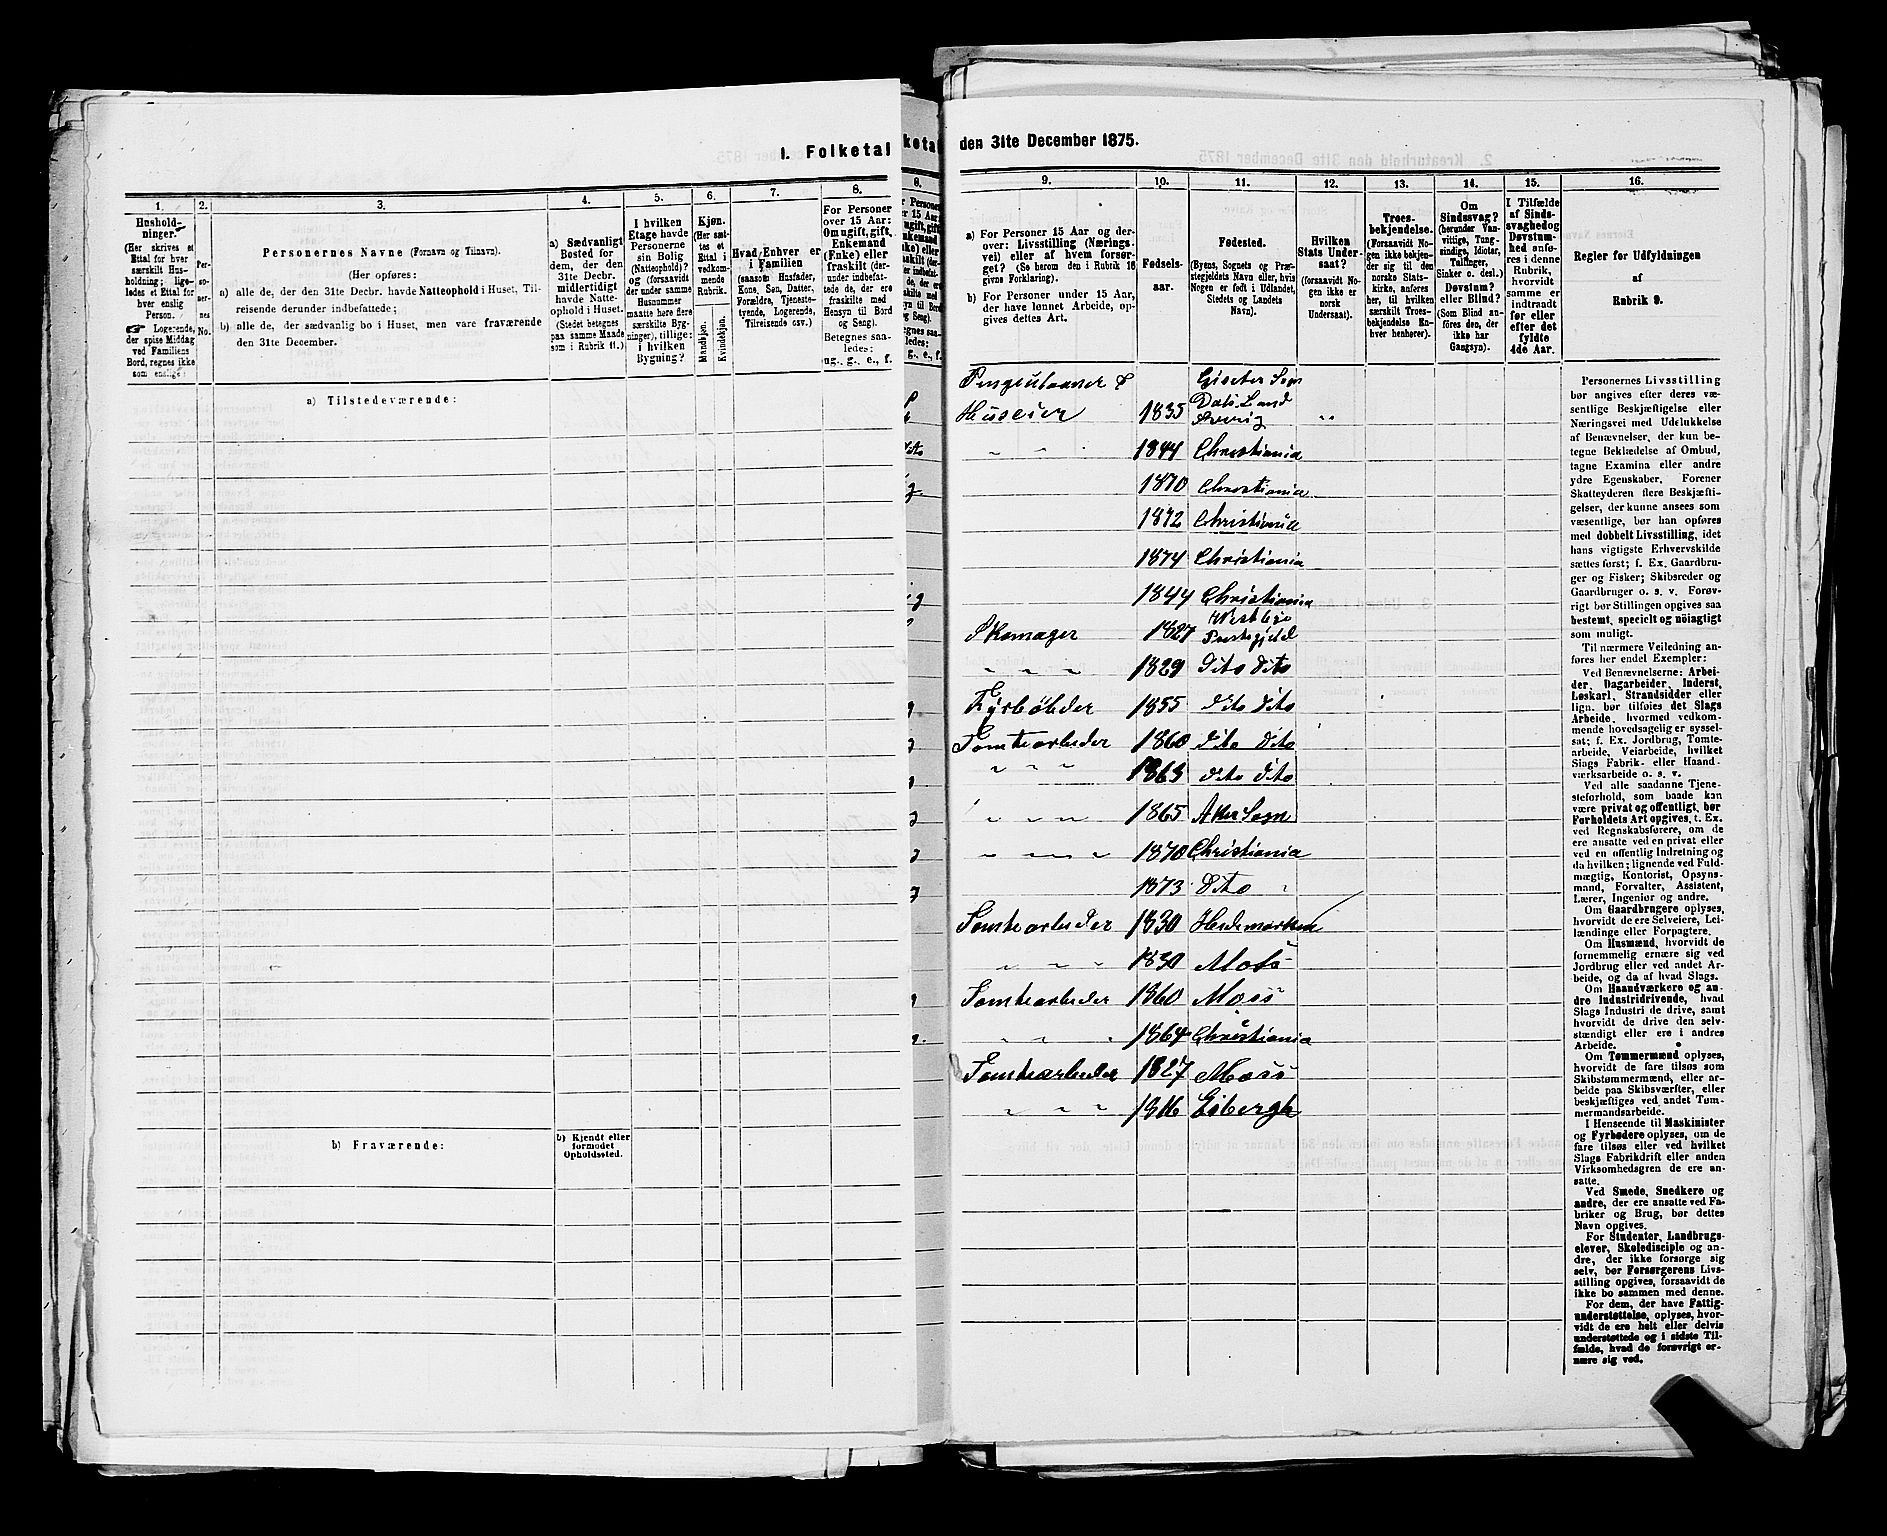 1. Folketal
1.
2.
3.
4.
5.
6.
7.
8.
Hushold-
ninger.
(Her skrives et
Ettal for hver
særskilt Hus-
holdning; lige-
ledes et Ettal for
hver enslig
Person.
☞ Logerende,
der spise Middag
ved Familiens
Bord, regnes ikke
som enslige.)
Per-
so-
ner-
nes
No.
Personernes Navne (Fornavn og Tilnavn).
(Her opføres:
a) alle de, der den 31te Decbr. havde Natteophold i Huset, Til-
reisende derunder indbefattede;
b) alle de, der sædvanlig bo i Huset, men vare fraværende
den 31te December.
a) Sædvanligt
Bosted for
dem, der den
31te Decbr.
midlertidigt
havde Natte-
ophold i Huset.
(Stedet betegnes
paa samme Maade
som i Rubrik 11.)
I hvilken
Etage havde
Personerne
sin Bolig
(Natteophold)?
og (forsaavidt
der under samme
Husnummer
maatte høre flere
særskilte Byg-
ninger), tillige:
i hvilken
Bygning?
Kjøn.
(Her sæt-
tes et
Ettal i
vedkom-
mende
Rubrik.
Mandkjøn.
Kvindekjøn.
Hvad Enhver er
i Familien
(saasom Husfader,
Kone, Søn, Datter,
Forældre, Tjeneste-
tyende, Logerende,
Tilreisende osv.)
For Personer
over 15 Aar:
Om ugift, gift,
Enkemand
(Enke) eller
fraskilt (der-
under indbefat-
tede de, der ere
fraskilte med
Hensyn til Bord
og Seng).
Betegnes saa-
ledes:
ug., g., e., f.
a) Tilstedeværende:
b) Fraværende:
b) Kjendt eller
formodet
Opholdssted.
ketal
8.
den 31te December 1875.
9.
10.
11.
12.
13.
14.
15.
16.
a) For Personer 15 Aar og der-
over: Livsstilling (Nærings-
vei) eller af hvem forsør-
get? (Se herom den i Rubrik 16
givne Forklaring).
b) For Personer under 15 Aar,
der have lønnet Arbeide, op-
gives dettes Art.
Fødsels-
aar.
Fødested.
(Byens, Sognets og Præ-
stegjeldets Navn eller, hvis
Nogen er født i Udlandet,
Stedets og Landets
Navn).
Hvilken
Stats Under-
saat?
(forsaavidt No-
gen ikke er
norsk
Undersaat).
Troes-
bekjendelse.
(Forsaavidt No-
gen ikke bekjen-
der sig til den
norske Stats-
kirke, anføres
her, til hvilken
særskilt Troes-
bekjendelse En-
hver henhører).
Om
Sindssvag?
(herunder Van-
vittige, Tung-
sindige, Idioter,
Tullinger,
Sinker o. desl.)
Døvstum?
eller Blind?
(Som Blind an-
føres den, der
ikke har
Gangsyn).
I Tilfælde
af Sinds-
svaghed og
Døvstum-
hed anfø-
res i denne
Rubrik,
hvorvidt
samme er
indtraadt
før eller
efter det
fyldte
4de Aar.
Regler for Udfyldningen
af
Rubrik 9.
Huseier 1835 Dals Land
1844 Christiania
1870 Christiania
1872 Christiania
1874 Christiania
1844 Christiania
Skomager 1827 Præstegjeld
1829 Dito Dito
Fyrbøder 1855 Dito Dito
Tomtearbeider 1860 Dito Dito
1863 Dito Dito
1865 Aker Sogn
1870 Christiania
1873 Dito
Tomtearbeider 1830 Hedemarken
1830 Moss
Tomtearbeider 1860 Moss
1864 Christiania
Tomtearbeider 1827 Moss
1816 Eidsbergh
Personernes Livsstilling
bør angives efter deres væ-
sentlige Beskjæftigelse eller
Næringsvei med Udelukkelse
af Benævnelser, der kun be-
tegne Beklædelse af Ombud,
tagne Examina eller andre
ydre Egenskaber. Forener
Skatteyderen flere Beskjæfti-
gelser, der kunne ansees som
væsentlige, bør han opføres
med dobbelt Livsstilling, idet
hans vigtigste Erhvervskilde
sættes først; f. Ex. Gaardbru-
ger og Fisker; Skibsreder og
Gaardbruger o. s. v. Forøv-
rigt bør Stillingen opgives saa
bestemt, specielt og nøiagtigt
som muligt.
Til nærmere Veiledning an-
føres her endel Exempler:
Ved Benævnelserne: Arbei-
der, Dagarbeider, Inderst,
Løskarl, Strandsidder eller
lign. bør tilføies det Slags
Arbeide, hvormed vedkom-
mende hovedsagelig er syssel-
sat; f. Ex. Jordbrug, Tomte-
arbeide, Veiarbeide, hvilket
Slags Fabrik- eller Haand-
værksarbeide o. s. v.
Ved alle saadanne Tjene-
steforhold, som baade kan
være privat og offentligt, bør
Forholdets Art opgives, t. Ex.
ved Regnskabsførere, om de
ere ansatte ved en privat eller
ved en offentlig Indretning og
da hvilken; lignende ved Fuld-
mægtig, Kontorist, Opsyns-
mand, Forvalter, Assistent,
Lærer, Ingeniør og andre.
Om Gaardbrugere oplyses,
hvorvidt de ere Selveiere, Lei-
lændinge eller Forpagtere.
Om Husmænd, hvorvidt de
fornemmelig ernære sig ved
Jordbrug eller ved andet Ar-
beide, og da af hvad Slags.
Om Haandværkere og an-
dre Industridrivende, hvad
Slags Industri de drive, samt
hvorvidt de drive den selv-
stændigt eller ere i andres
Arbeide.
Om Tømmermænd oplyses,
hvorvidt de fare tilsøs som
Skibstømmermænd, eller ar-
beide paa Skibsværfter, eller
beskjæftiges ved andet Tøm-
mermandsarbeide.
I Henseende til Maskinister
og Fyrbødere oplyses, om de
fare tilsøs eller ved hvilket
Slags Fabrikdrift eller anden
Virksomhedsgren de ere an-
satte.
Ved Smede, Snedkere og
andre, der ere ansatte ved Fa-
briker og Brug, bør dettes
Navn opgives.
For Studenter, Landbrugs-
elever, Skoledisciple og an-
dre, der ikke forsørge sig
selv, bør Forsørgerens Livs-
stilling opgives, forsaavidt de
ikke bo sammen med denne.
For dem, der have Fattig-
understøttelse, oplyses, hvor-
vidt de ere helt eller delvis
understøttede og i sidste Til-
fælde, hvad de forøvrigt er-
nære sig ved.